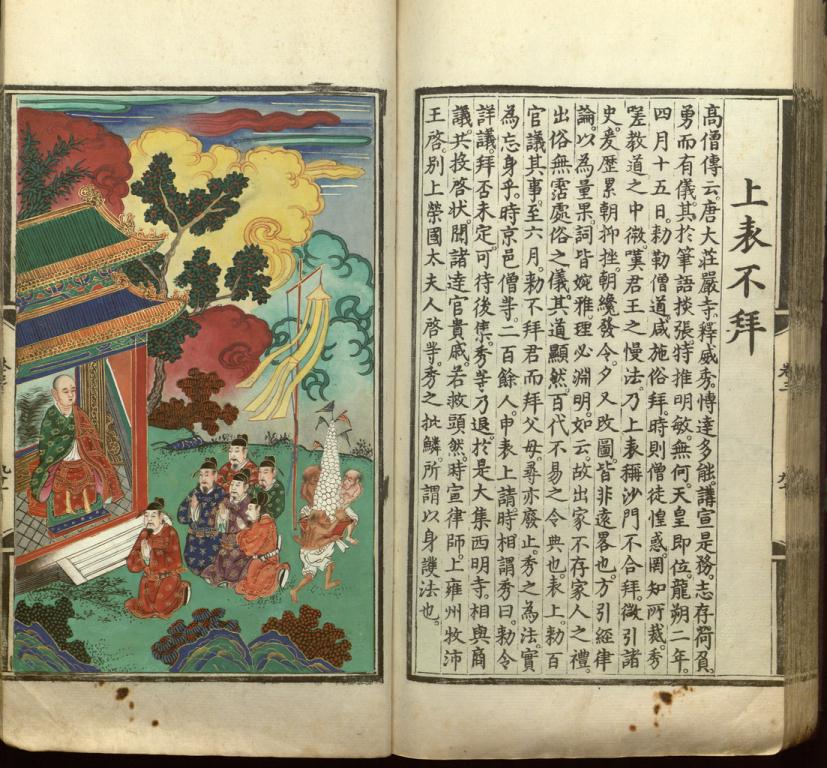 上表不拜
高僧傳云。唐大莊嚴寺。釋威秀。慱達多能。講宣是務。志存荷負。
勇而有儀。其於筆語掞張。特推明敏。無何。天皇即位。龍朔二年。
四月十五日。勅勒僧道。咸施俗拜。時則僧徒惶惑。罔知所裁。秀
嗟教道之中微。嘆君王之慢法。乃上表稱沙門不合拜。徵引諸
史。爰歷累朝抑挫。朝纔發令。夕又改圖。皆非遠畧也。方引經律
論。以為量果。詞皆婉雅。理必淵明。如云故出家不存家人之禮。
出俗無霑處俗之儀。其道顯然。百代不易之令典也。表上。勅百
官議其事。至六月。勅不拜君而拜父母。尋亦廢止。秀之為法。實
為忘身乎。時京邑僧等。二百餘人。申表上請。時相謂秀曰。勅令
詳議。拜否未定。可待後集。秀等乃退。於是大集西明寺。相與商
議。共投啓狀。聞諸達官貴戚。若救頭然。時宣律師上雍州牧沛
王啓。別上榮國太夫人啓等。秀之批鱗。所謂以身護法也。
卷三